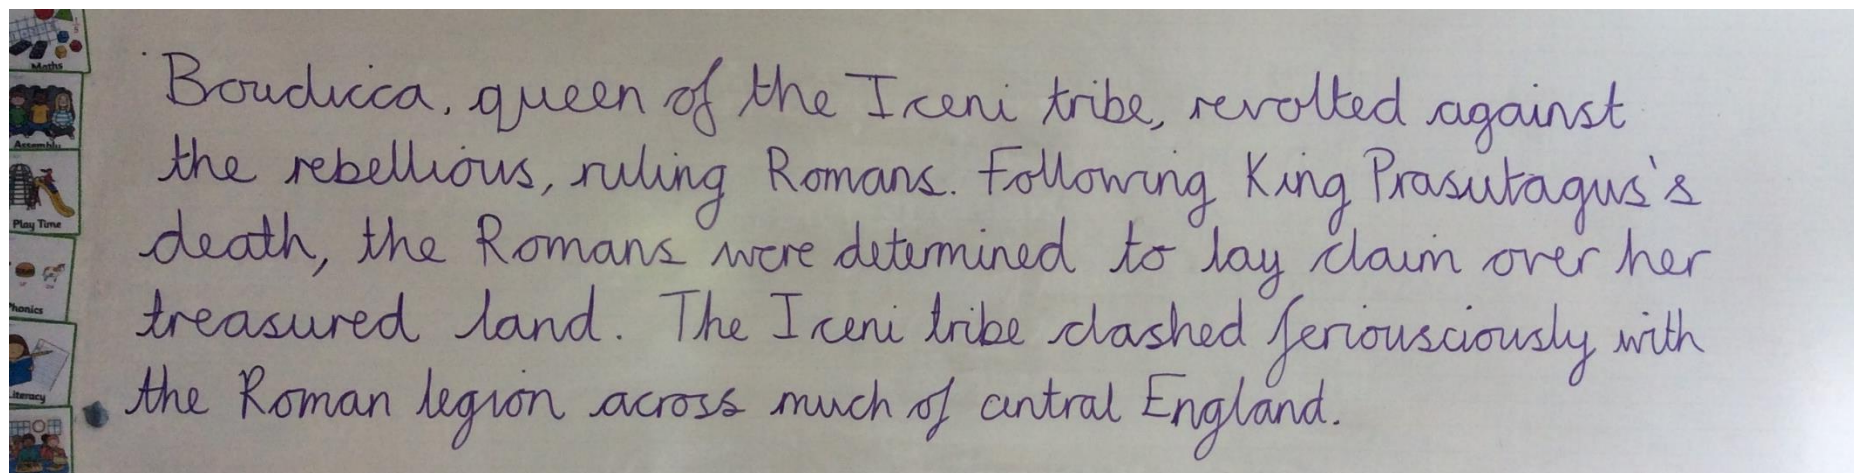 Maths
Assembly
Play Time
honics
iteracy
Boudicca, queen of the Iceni tribe, revolted against
the rebellious, ruling Romans. Following King Prasutagus's
death, the Romans were determined to lay claim over her
treasured land. The Iceni tribe clashed feriousciously with
the Roman legion across much of central England.